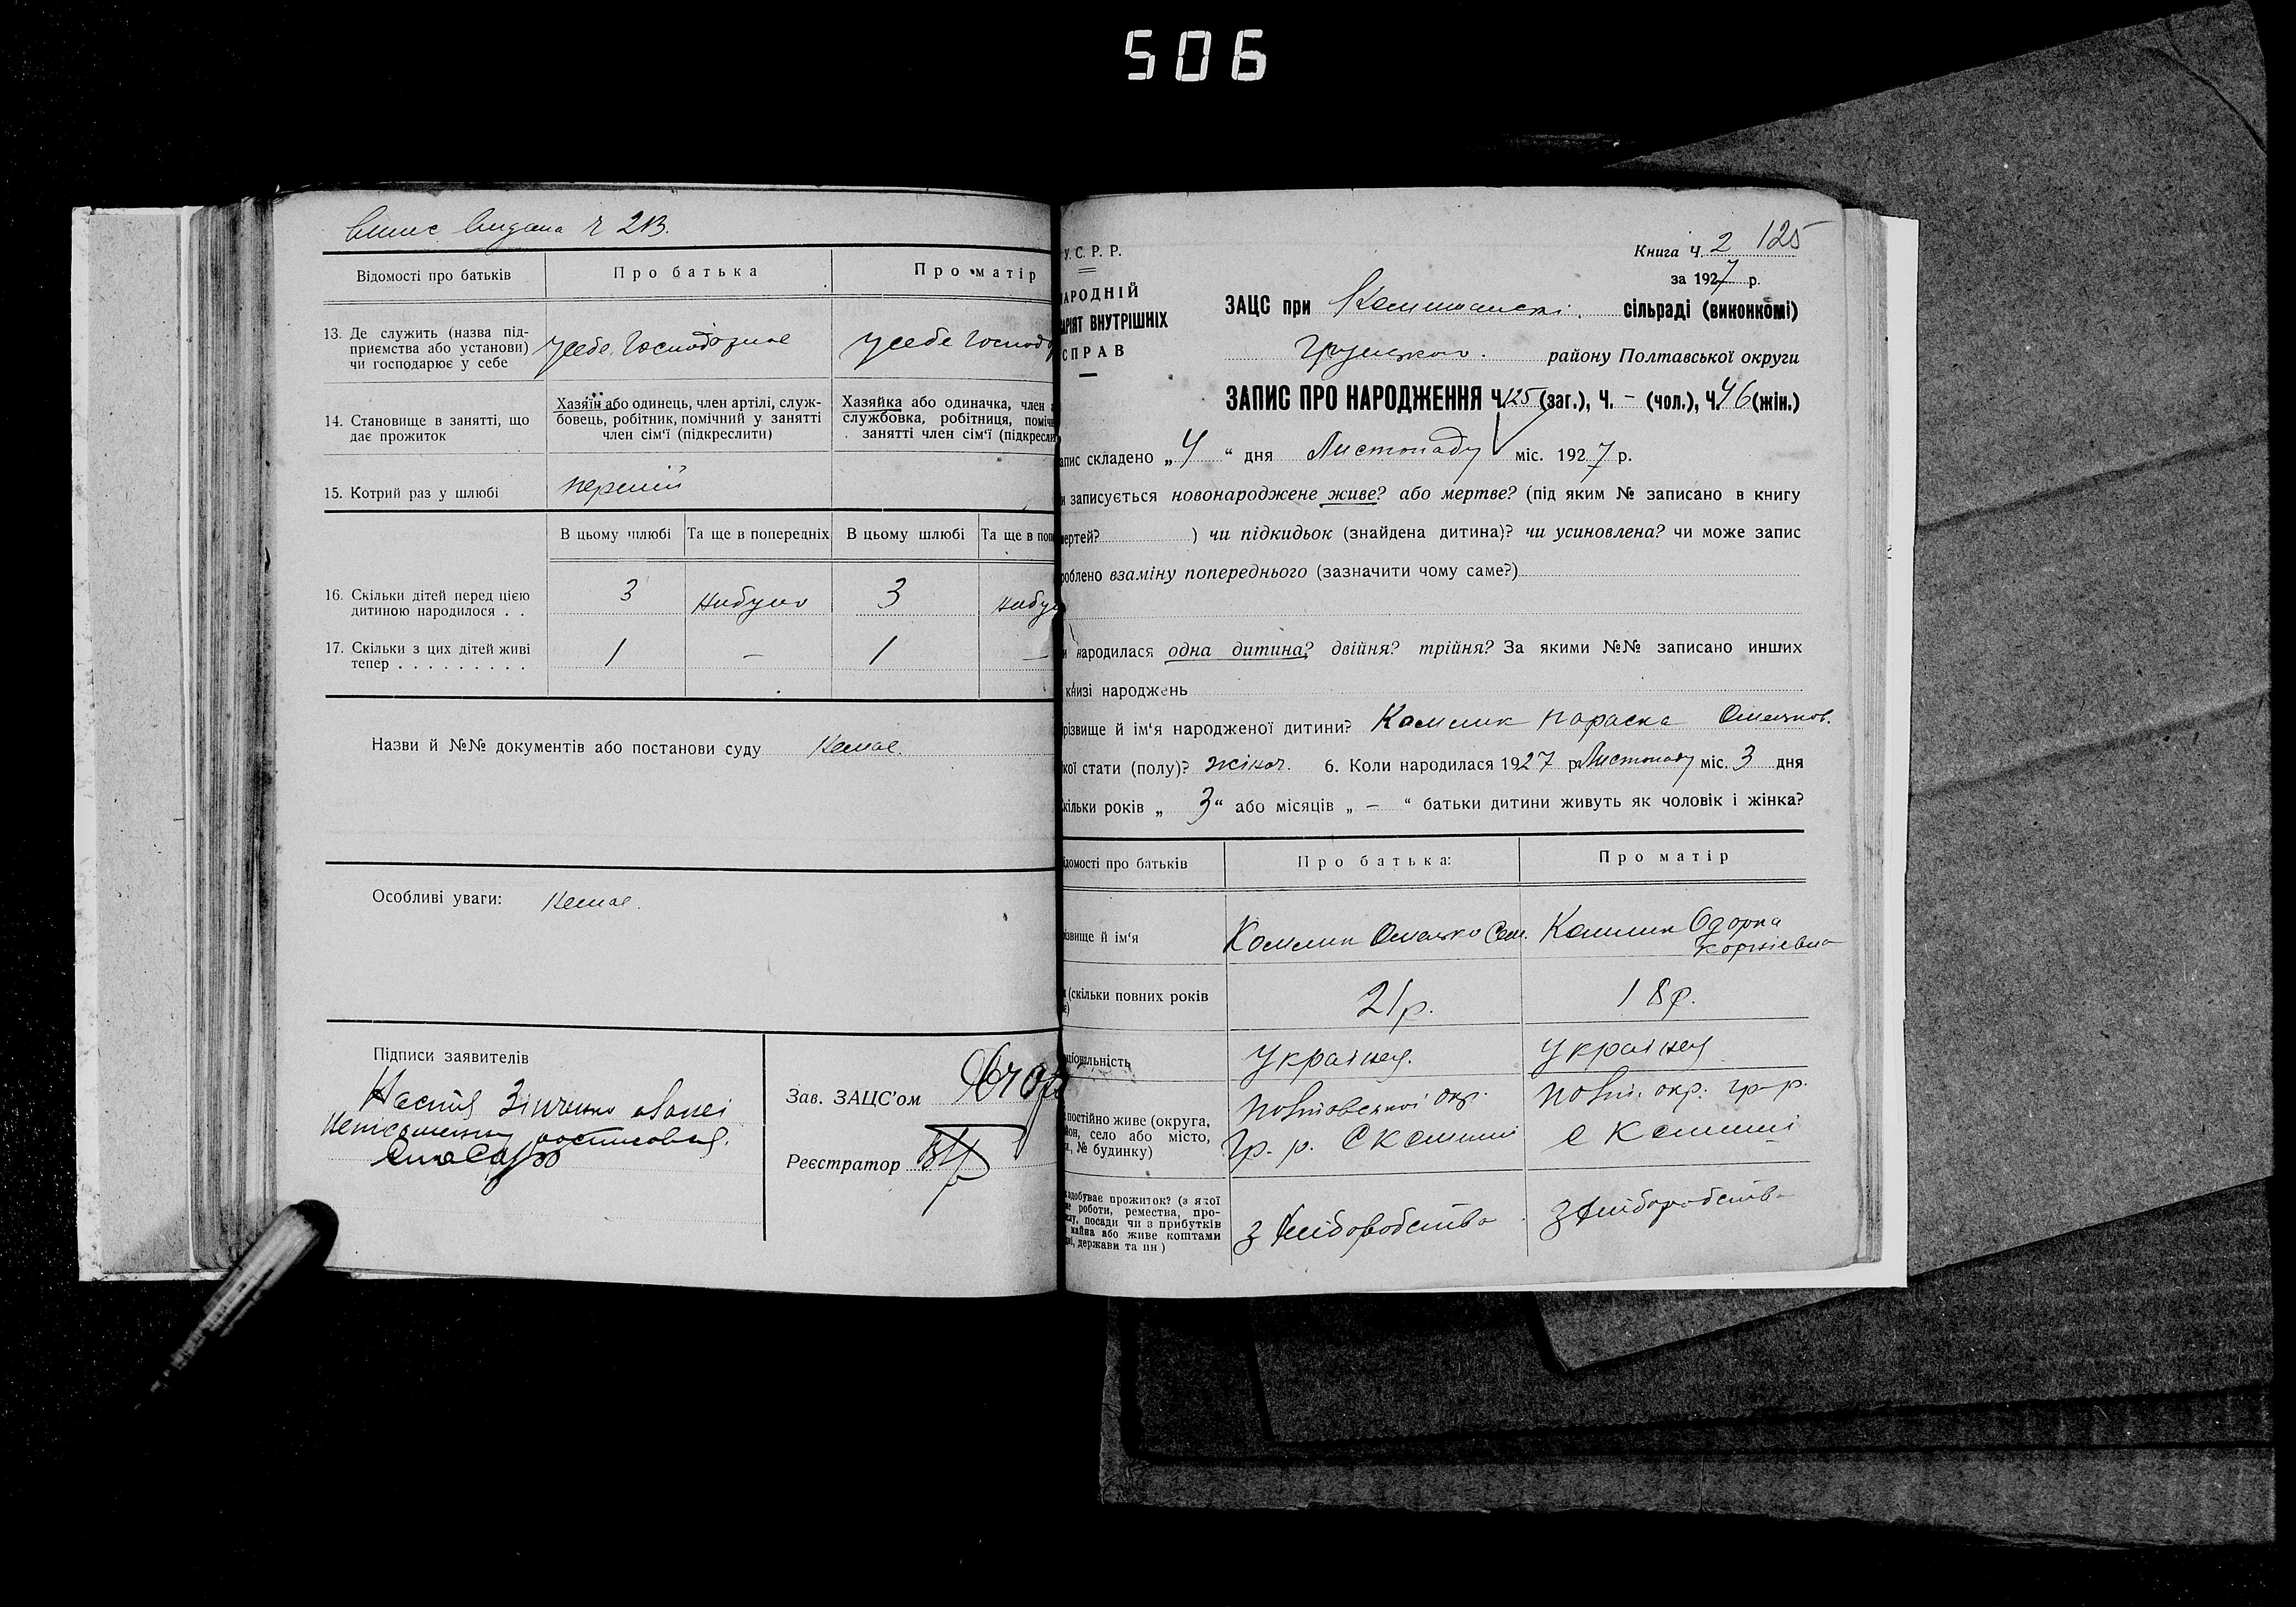 506
випис видана ч 213.
Відомості про батьків
Про батька
Про матір
13. Де служить (назва під-
приємства або установи)
чи господарює у себе
усебе господарює
усебе господ
14. Становище в занятті, що
дає прожиток
Хазяїн або одинець, член артілі, служ-
бовець, робітник, помічний у занятті
член сім'ї (підкреслити)
Хазяйка або одиначка, член
службовка, робітниця, поміч
занятті член сім'ї (підкресли
15. Котрий раз у шлюбі
перший
В цьому шлюбі
Та ще в попередніх
В цьому шлюбі
Та ще в поп
16. Скільки дітей перед цією
дитиною народилося . .
3
небуло
3
небул
17. Скільки з цих дітей живі
тепер . . . . . . . . .
1
–
1
–
Назви й №№ документів або постанови суду
немає.
Особливі уваги:
немає.
Підписи заявителів
Настя
Зав. ЗАЦС'ом
Реєстратор
У. С. Р. Р.
АРОДНІЙ
АРІЯТ ВНУТРІШНІХ
СПРАВ
Книга Ч. 2 125
за 1927 р.
ЗАЦС при сільраді (виконкомі)
району Полтавської округи
ЗАПИС ПРО НАРОДЖЕННЯ Ч. 125 (заг.), Ч. – (чол.), Ч. 46 (жін.)
апис складено „4“ дня Листопаду міс. 1927 р.
и записується новонароджене живе? або мертве? (під яким № записано в книгу
мертей? ) чи підкидьок (знайдена дитина)? чи усиновлена? чи може запис
роблено взаміну попереднього (зазначити чому саме?)
и народилася одна дитина? двійня? трійня? За якими №№ записано инших
книзі народжень
різвище й ім'я народженої дитини? Параска
кої стати (полу)? жіноч. 6. Коли народилася 1927 р Листопаду міс. 3 дня
кільки років „3“ або місяців „–“ батьки дитини живуть як чоловік і жінка?
ідомості про батьків
Про батька:
Про матір
різвище й ім'я
Омелько Сем.
Одарка
Корніевна
(скільки повних років
21 р.
18 р.
ціональність
Українец.
Україңец
постійно живе (округа,
йон, село або місто,
, № будинку)
Полтовської окр.
Гр. р.
Полт. окр. гр-р.
здобуває прожиток? (з якої
роботи, ремества, про-
су, посади чи з прибутків
майна або живе коштами
, держави та ин)
з хліборобства
з хліборобств